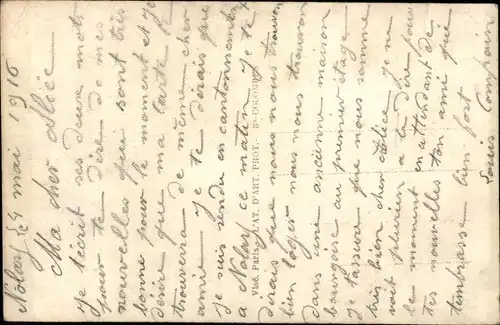 Nolay 24 mai 1916
Ma cher Alice
Je t'écrit ses deux mots
pour te dire de mes
nouvelles qui sont très
bonne pour le moment et je
désire que ma carte t'en
trouvera de même cher
amie je te dirais que
je suis rendu en cantonnement
a Nolay ce matin je te
dirais que nous nous trouvon
bien loger nous nous trouvon
dans une ancienne maison
bourgoise au premier étage
je t'assure que nous somme
très bien cher Alice je ne
voit plus rien a te dire pour
le moment en attendant de
tes nouvelles ton ami qui
t'embrasse bien fort
Louis
Visé. Paris. LAT. D'ART. PHOT. Bs-COLOMBES